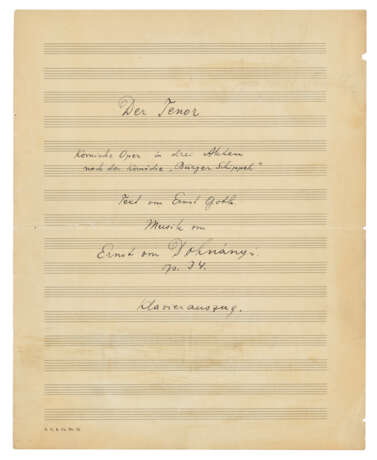 Der Tenor
Komische Oper in drei Akten
nach der Komödie „Bürger Schippel“
Text von Ernst Goth
Musik von
Ernst von Dohnányi
op. 34.
Klavierauszug.